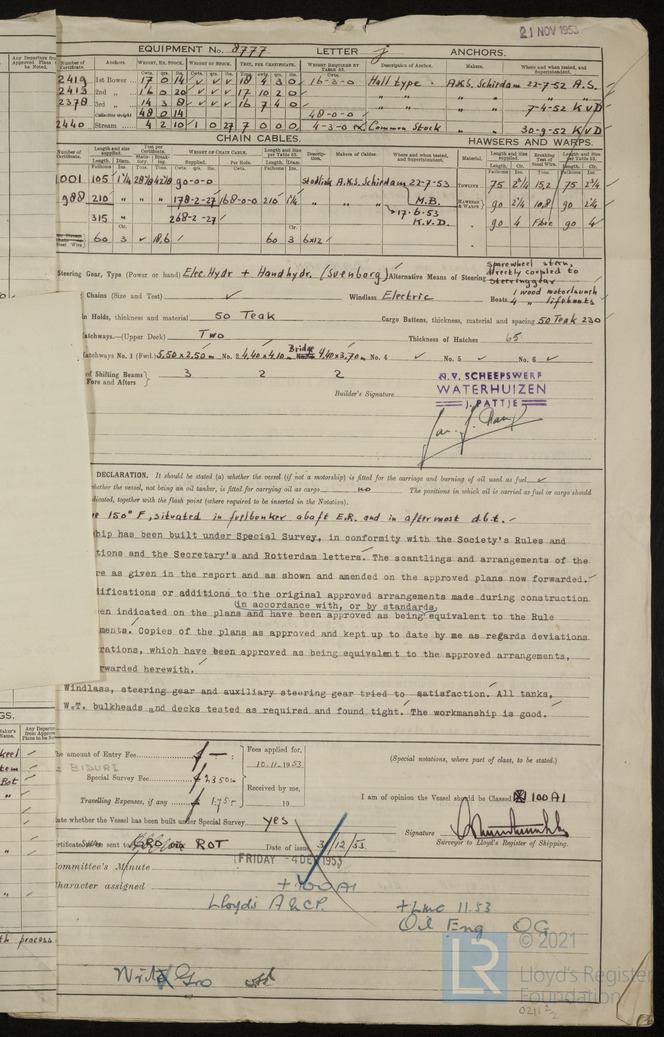 21 NOV 1953
EQUIPMENT No. 8777 LETTER j ANCHORS.
Anchors. WEIGHT, EX. STOCK. WEIGHT OF STOCK. TEST, PER CERTIFICATE. WEIGHT REQUIRED BY TABLE 53. Description of Anchor. Makers. Where and when tested, and Superintendent.
2419 1st Bower 17 0 14 18 4 3 0 16-3-0 Hall type A.K.S. Schiedam 22-7-52 A.S.
2413 2nd 16 0 20 17 10 2 0
2378 3rd 14 3 8 16 7 4 0 7-4-52 K.v.D
Collective weight 48 0 14 48-0-0
2440 Stream 4 2 10 1 0 27 7 0 0 0 4-3-0 Common Stock 30-9-52 K.v.D
CHAIN CABLES. HAWSERS AND WARPS.
1001 105 1¼ 90-0-0 Studlink A.K.S. Schiedam 22-7-53 TOWLINE 75 2¾ 15,2 75 2¼
988 210 178-2-27 168-0-0 210 1¼ M.B. HAWSERS & WARPS 90 2¼ 10,8 90 2¼
17-6-53
315 268-2-27 K.v.D. 90 4 Fibre 90 4
60 3 18,6 60 3 6x12
Steering Gear, Type (Power or hand) Elec. Hydr + Handhydr. (Svenborg) Alternative Means of Steering sparewheel stern, directly coupled to steeringgear
Chains (Size and Test) Windlass Electric Boats 1 wood motorlaunch 4 " lifeboats
in Holds, thickness and material 50 Teak Cargo Battens, thickness, material and spacing 50 Teak 230
atchways.—(Upper Deck) Two Thickness of Hatches 65
atchways No. 1 (Fwd.) 5.50 x 2.50 m No. 2 4,40 x 4,10 m Bridge 4,40 x 3,70 m No. 4 No. 5 No. 6
of Shifting Beams 3 2 2
Fore and Afters
Builder's Signature
N.V. SCHEEPSWERF
WATERHUIZEN
J. PATTJE
DECLARATION. It should be stated (a) whether the vessel (if not a motorship) is fitted for the carriage and burning of oil used as fuel
whether the vessel, not being an oil tanker, is fitted for carrying oil as cargo no The positions in which oil is carried as fuel or cargo should
dicated, together with the flash point (where required to be inserted in the Notation).
150° F, situated in fuelbunker abaft E.R. and in aftermost d.b.t.
hip has been built under Special Survey, in conformity with the Society's Rules and
tions and the Secretary's and Rotterdam letters. The scantlings and arrangements of the
re as given in the report and as shown and amended on the approved plans now forwarded.
ifications or additions to the original approved arrangements made during construction
in accordance with, or by standards,
en indicated on the plans and have been approved as being equivalent to the Rule
ments. Copies of the plans as approved and kept up to date by me as regards deviations
rations, which have been approved as being equivalent to the approved arrangements,
rwarded herewith.
Windlass, steering gear and auxiliary steering gear tried to satisfaction. All tanks,
W.T. bulkheads and decks tested as required and found tight. The workmanship is good.
he amount of Entry Fee Fees applied for,
10.11.1953
(Special notations, where part of class, to be stated.)
Special Survey Fee Received by me,
Travelling Expenses, if any 19
I am of opinion the Vessel should be Classed 100A1
ate whether the Vessel has been built under Special Survey yes
Signature
Surveyor to Lloyd's Register of Shipping.
ROT Date of issue 3/12/53
FRIDAY -4 DEC 1953
Committee's Minute
Character assigned +100A1
Lloyds A & CP.
+LMC 11.53
Oil Eng OG
Write Gro
© 2021
Lloyd's Register
Foundation